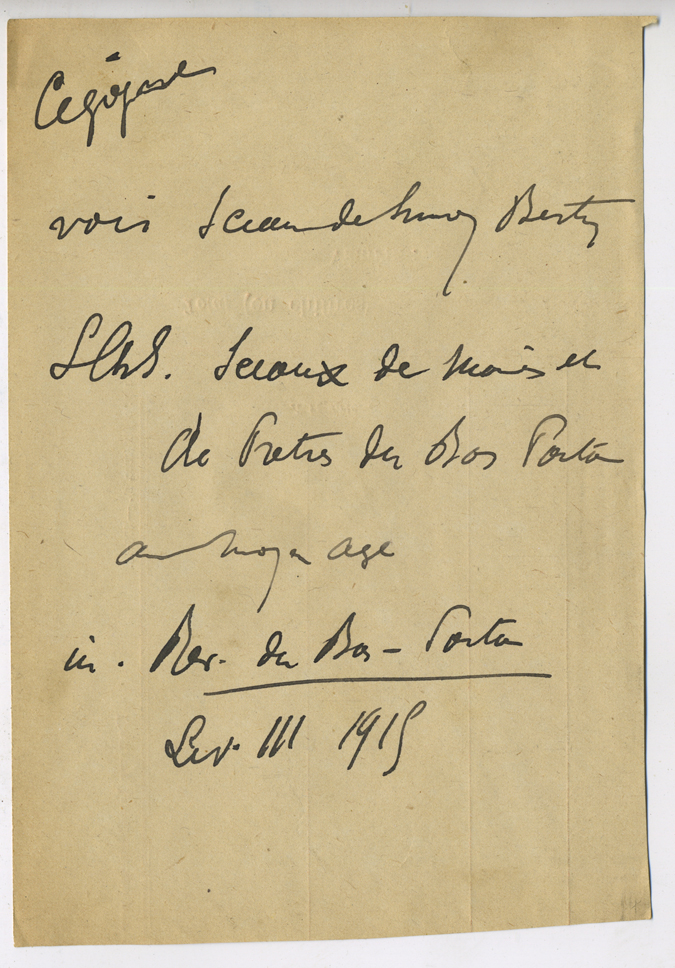 voir Sceau de Guy Berty
Sceaux de Maires et
de Pretres du Bas Poitou
au moyen age
in. Rev. du Bas-Poitou
Liv. III 1915